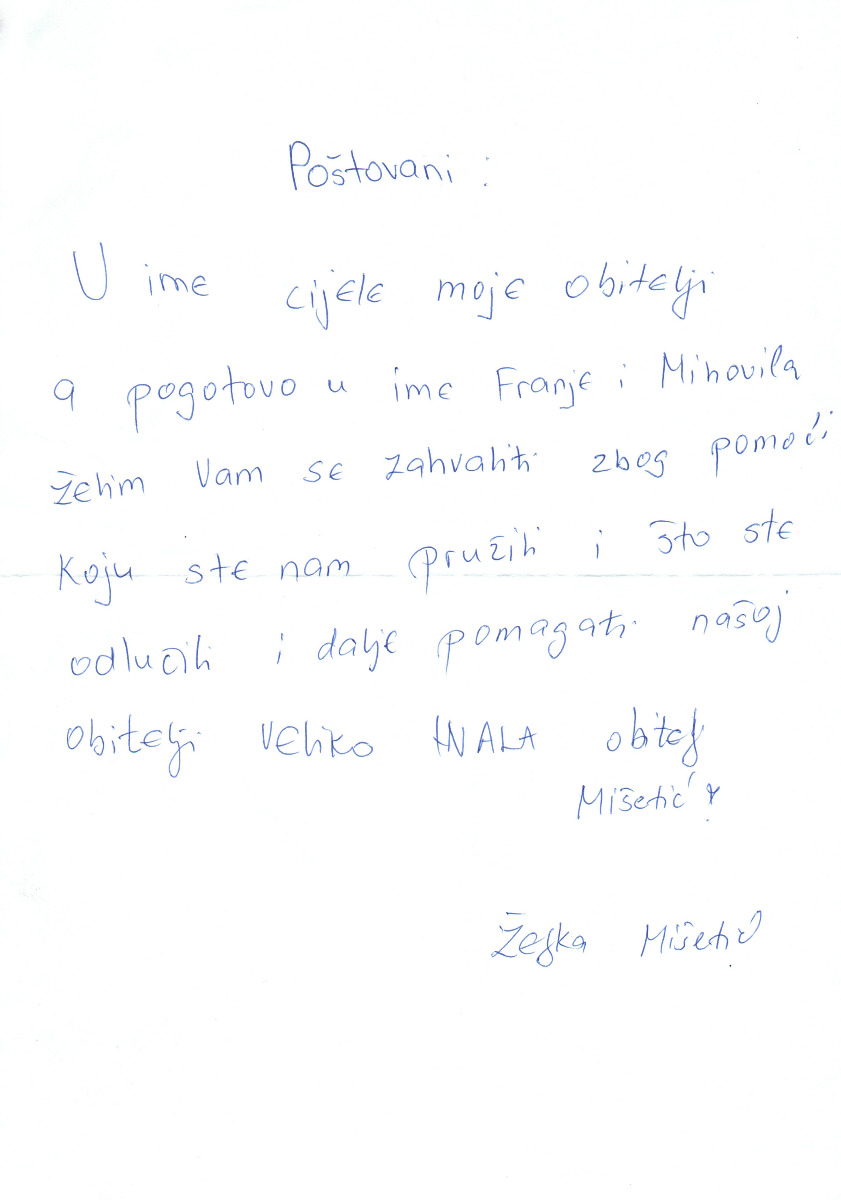 Poštovani :
U ime cijele moje obitelji
a pogotovo u ime Franje i Mihovila
želim Vam se zahvaliti zbog pomoći
koju ste nam pružili i što ste
odlučili i dalje pomagati našoj
obitelji VELIKO HVALA obitelj
Mišetić !
Željka Mišetić